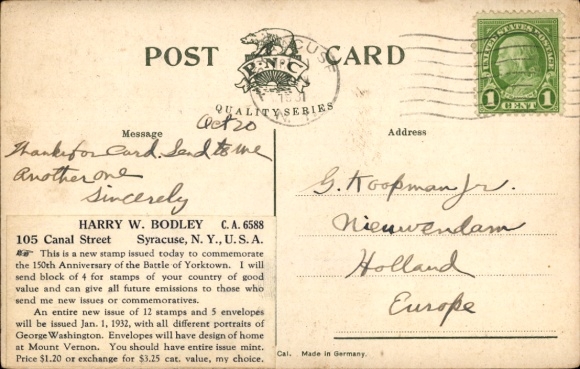 POST CARD
P. N. C
QUALITY SERIES
SYRACUSE
1931
N.Y.
UNITED STATES POSTAGE
1 CENT 1
Message
Oct 20
Thanks for Card. Send to me
Another one
Sincerely
HARRY W. BODLEY C. A. 6588
105 Canal Street Syracuse, N. Y., U. S. A.
☞ This is a new stamp issued today to commemorate
the 150th Anniversary of the Battle of Yorktown. I will
send block of 4 for stamps of your country of good
value and can give all future emissions to those who
send me new issues or commemoratives.
An entire new issue of 12 stamps and 5 envelopes
will be issued Jan. 1, 1932, with all different portraits of
George Washington. Envelopes will have design of home
at Mount Vernon. You should have entire issue mint.
Price $1.20 or exchange for $3.25 cat. value, my choice.
Address
G. Koopman Jr.
Nieuwendam
Holland
Europe
Cal. Made in Germany.